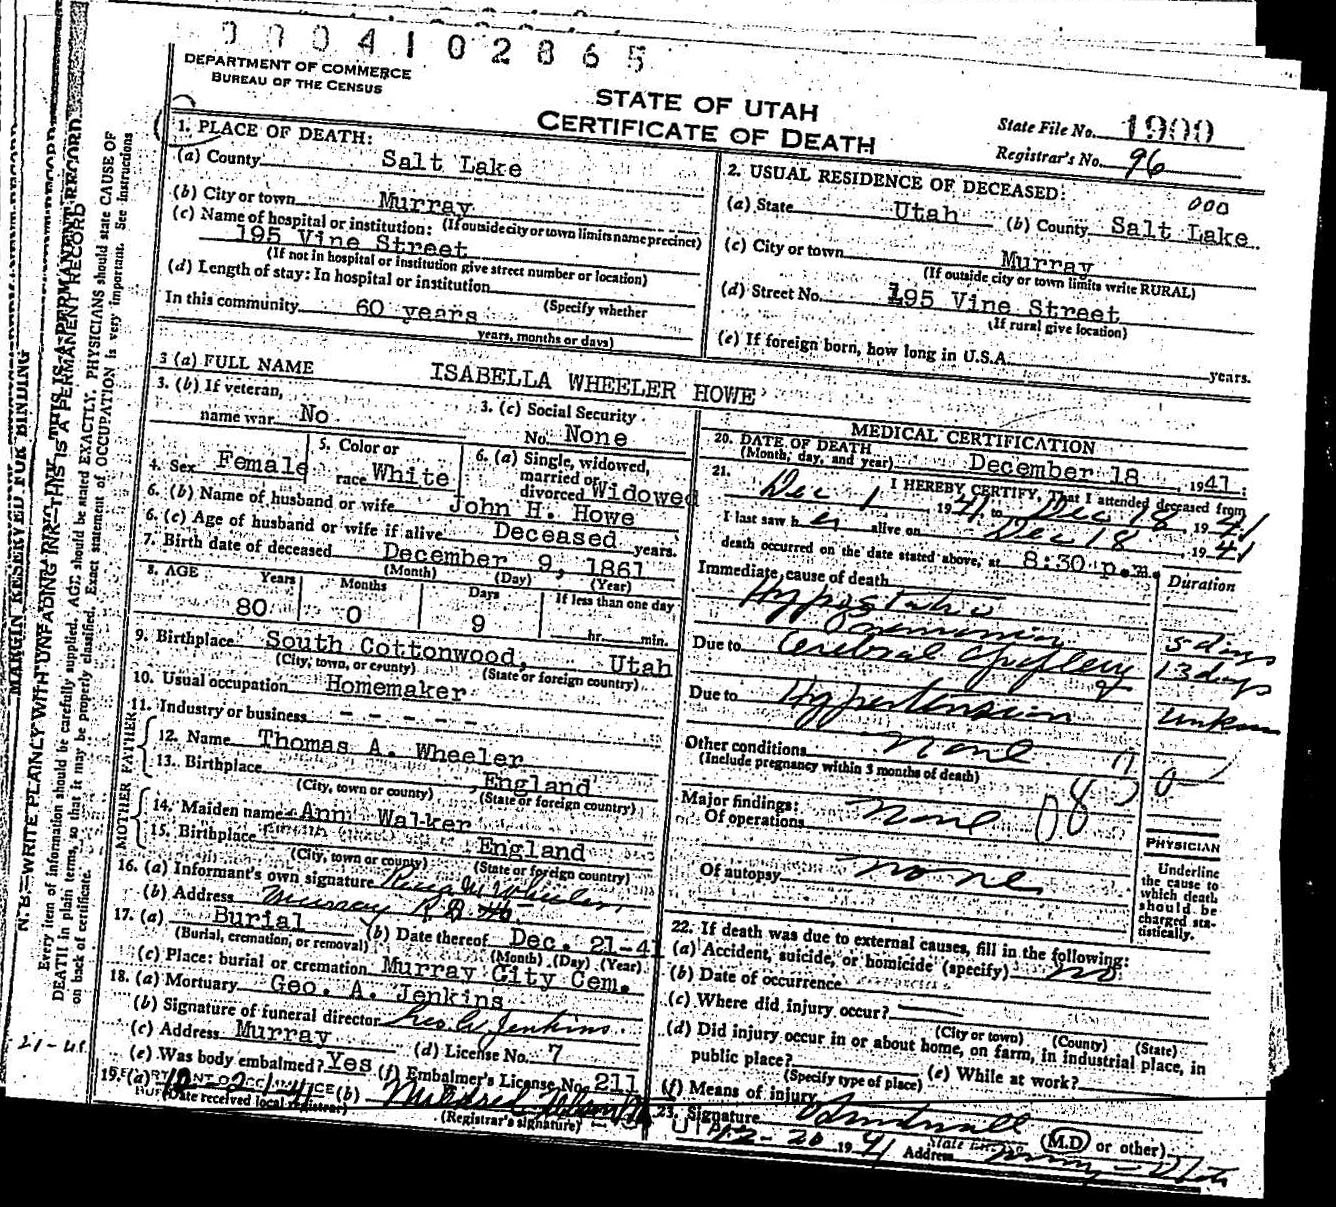 0004102865
DEPARTMENT OF COMMERCE
BUREAU OF THE CENSUS
STATE OF UTAH
CERTIFICATE OF DEATH
State File No. 1900
Registrar's No. 96
1. PLACE OF DEATH:
(a) County Salt Lake
(b) City or town Murray
(If outside city or town limits name precinct)
(c) Name of hospital or institution:
195 Vine Street
(If not in hospital or institution give street number or location)
(d) Length of stay: In hospital or institution
(Specify whether
In this community 60 years
years, months or days)
2. USUAL RESIDENCE OF DECEASED:
000
(a) State Utah (b) County Salt Lake
(c) City or town Murray
(If outside city or town limits write RURAL)
(d) Street No. 195 Vine Street
(If rural give location)
(e) If foreign born, how long in U.S.A. years.
3 (a) FULL NAME ISABELLA WHEELER HOWE
3. (b) If veteran,
name war No
3. (c) Social Security
No. None
4. Sex Female
5. Color or
race White
6. (a) Single, widowed,
married or
divorced Widowed
6. (b) Name of husband or wife John H. Howe
6. (c) Age of husband or wife if alive Deceased years.
7. Birth date of deceased December 9, 1861
(Month) (Day) (Year)
8. AGE Years Months Days If less than one day
80 0 9 hr. min.
9. Birthplace South Cottonwood, Utah
(City, town, or county) (State or foreign country)
10. Usual occupation Homemaker
11. Industry or business - - - - -
FATHER
12. Name Thomas A. Wheeler
13. Birthplace , England
(City, town or county) (State or foreign country)
MOTHER
14. Maiden name Ann Walker
15. Birthplace England
(City, town or county) (State or foreign country)
16. (a) Informant's own signature Wheeler
(b) Address Murray
17. (a) Burial (b) Date thereof Dec. 21-41
(Burial, cremation, or removal) (Month) (Day) (Year)
(c) Place: burial or cremation Murray City Cem.
18. (a) Mortuary Geo. A. Jenkins
(b) Signature of funeral director Geo A Jenkins
(c) Address Murray (d) License No. 7
(e) Was body embalmed? Yes (f) Embalmer's License No. 211
19. (a) (b) Mildred
(Date received local registrar) (Registrar's signature)
MEDICAL CERTIFICATION
20. DATE OF DEATH
(Month, day, and year) December 18, 1941:
21. I HEREBY CERTIFY, That I attended deceased from
Dec 1 1941 to Dec 18 1941
I last saw h er alive on Dec 18 1941
death occurred on the date stated above, at 8:30 p.m.
Duration
Immediate cause of death
Hypostatic
Pneumonia 5 days
Due to Cerebral Apoplexy 13 days
Due to Hypertension
Other conditions None
(Include pregnancy within 3 months of death)
Major findings:
Of operations None
Of autopsy none
PHYSICIAN
Underline
the cause to
which death
should be
charged sta-
tistically.
22. If death was due to external causes, fill in the following:
(a) Accident, suicide, or homicide (specify) no
(b) Date of occurrence
(c) Where did injury occur?
(City or town) (County) (State)
(d) Did injury occur in or about home, on farm, in industrial place, in
public place? (e) While at work?
(Specify type of place)
(f) Means of injury
23. Signature (M.D. or other)
12-20 1941 Address Murray - Utah
MARGIN RESERVED FOR BINDING
N. B.—WRITE PLAINLY WITH UNFADING INK—THIS IS A PERMANENT RECORD
Every item of information should be carefully supplied. AGE should be stated EXACTLY. PHYSICIANS should state CAUSE OF
DEATH in plain terms, so that it may be properly classified. Exact statement of OCCUPATION is very important. See instructions
on back of certificate.